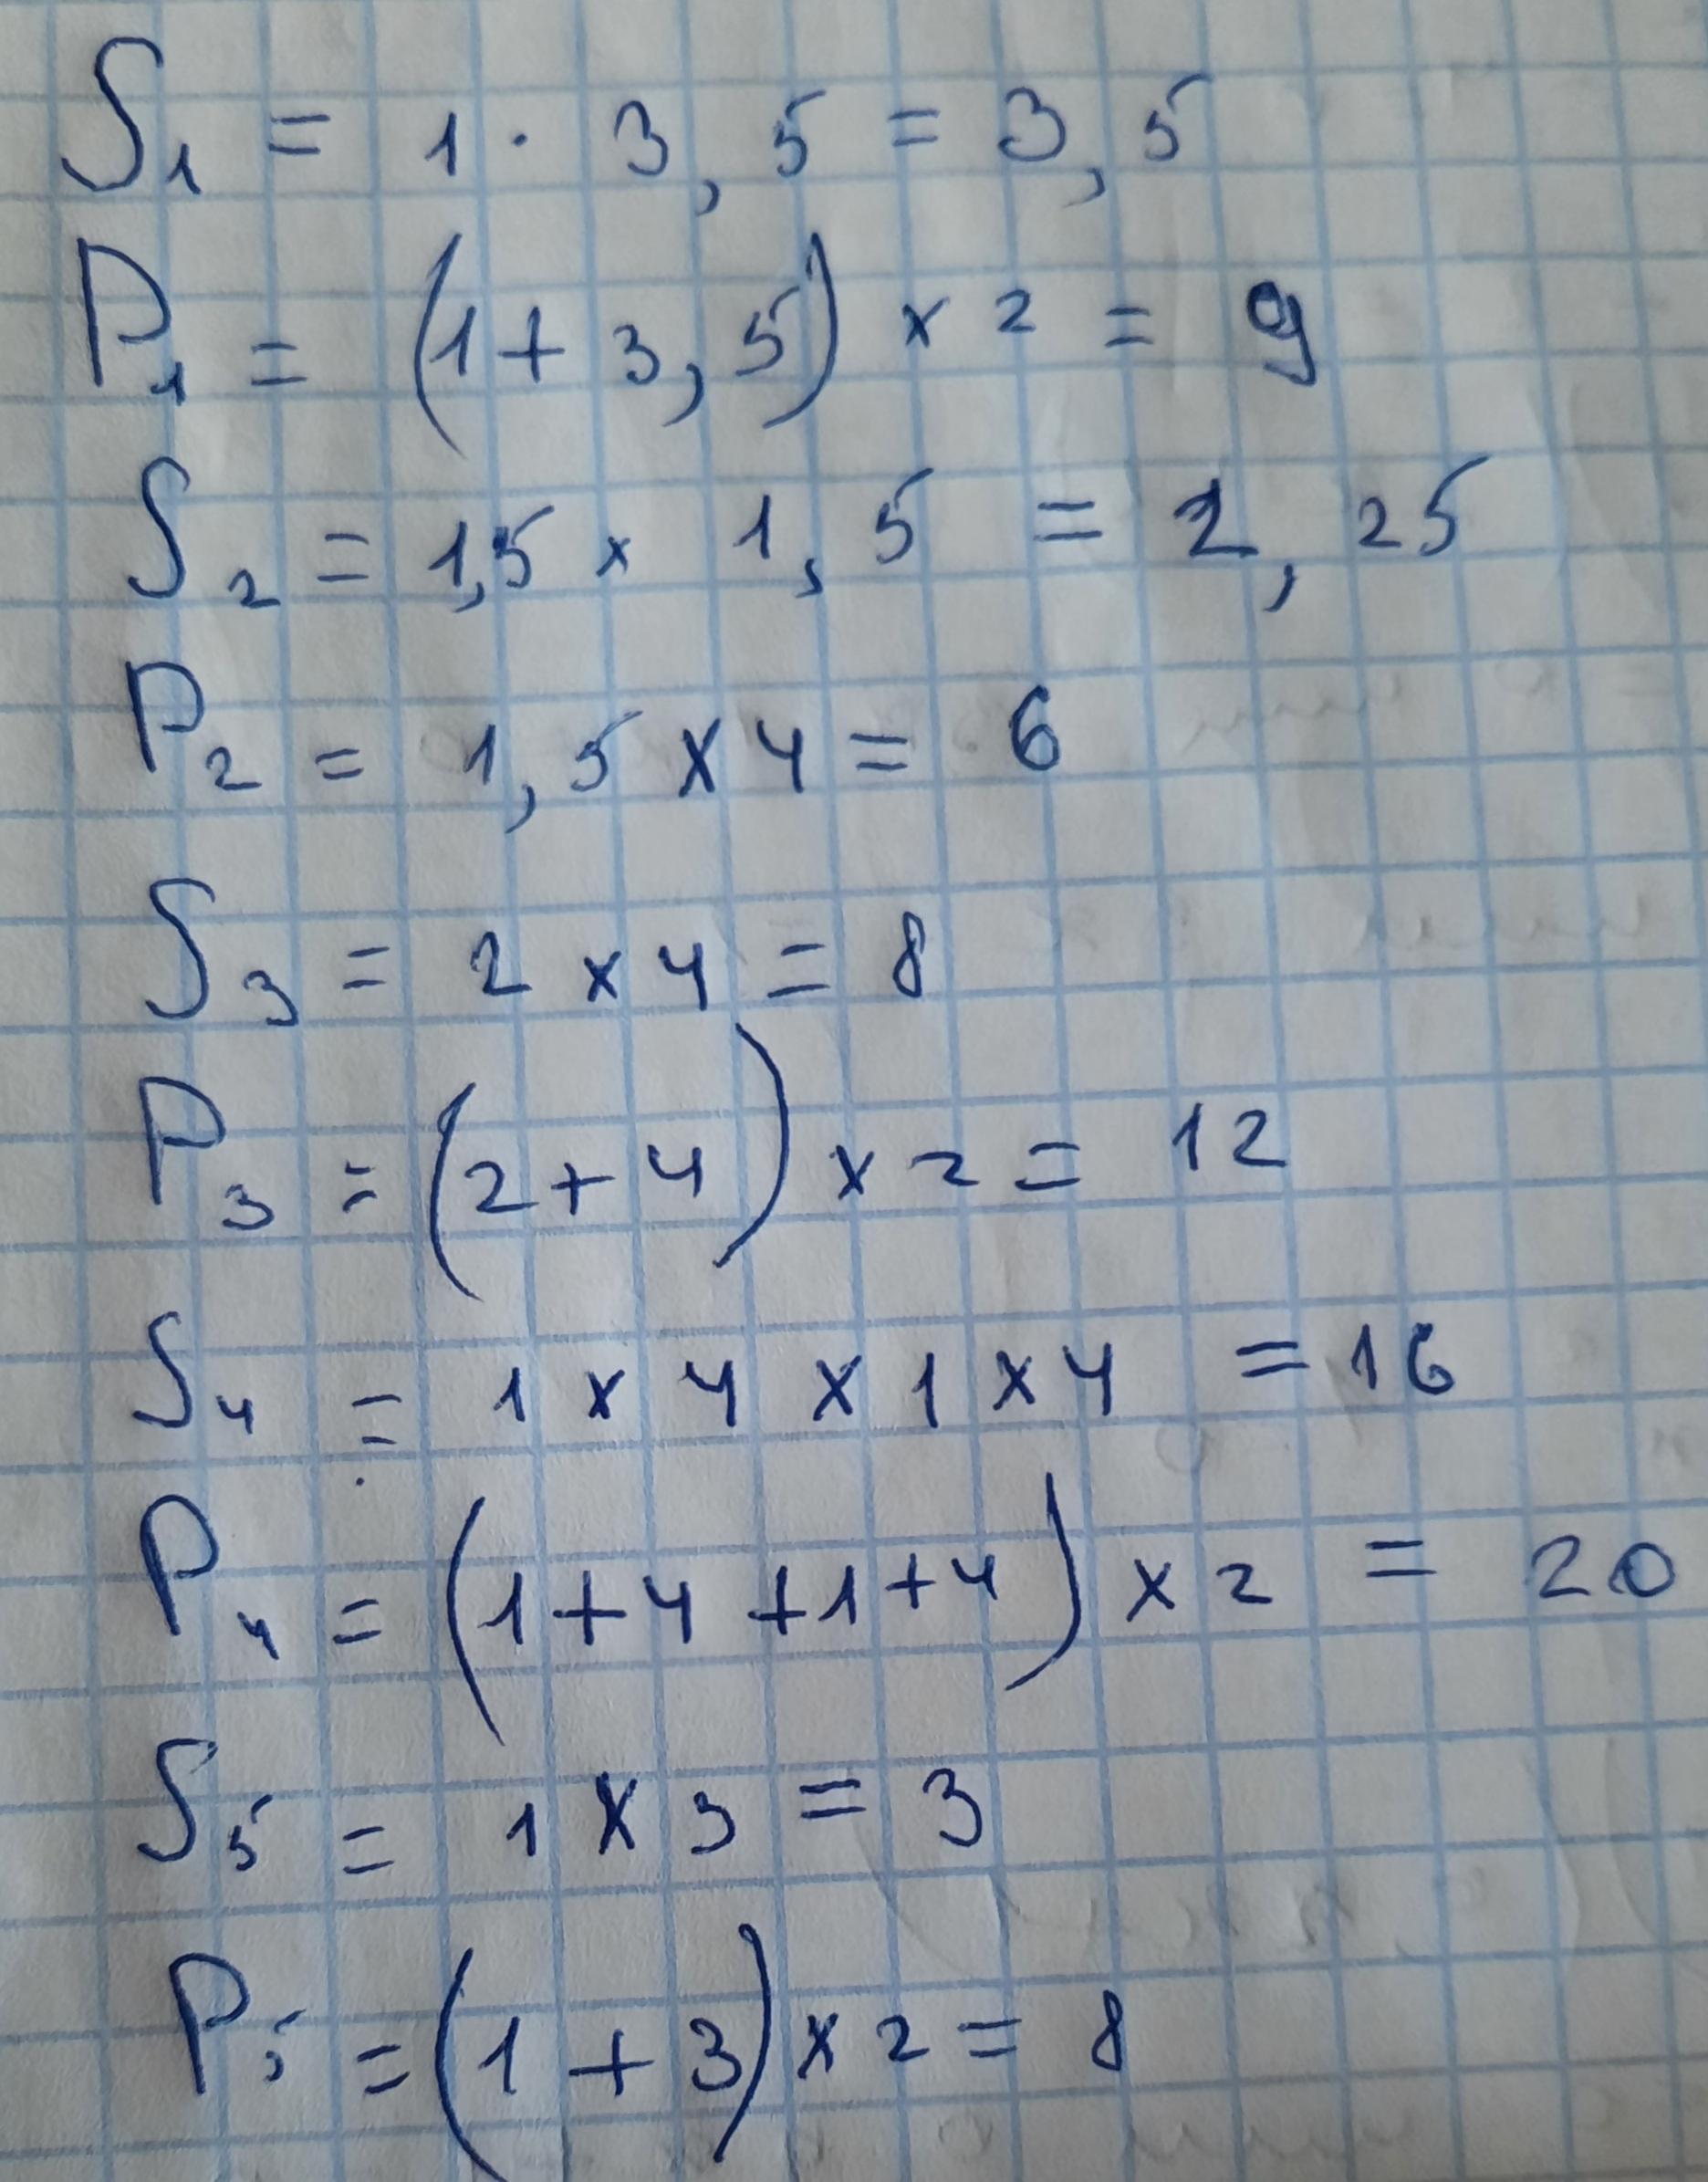 S₁ = 1 · 3,5 = 3,5
P₁ = (1 + 3,5) x 2 = 9
S₂ = 1,5 x 1,5 = 2,25
P₂ = 1,5 x 4 = 6
S₃ = 2 x 4 = 8
P₃ = (2 + 4) x 2 = 12
S₄ = 1 x 4 x 1 x 4 = 16
P₄ = (1 + 4 + 1 + 4) x 2 = 20
S₅ = 1 x 3 = 3
P₅ = (1 + 3) x 2 = 8